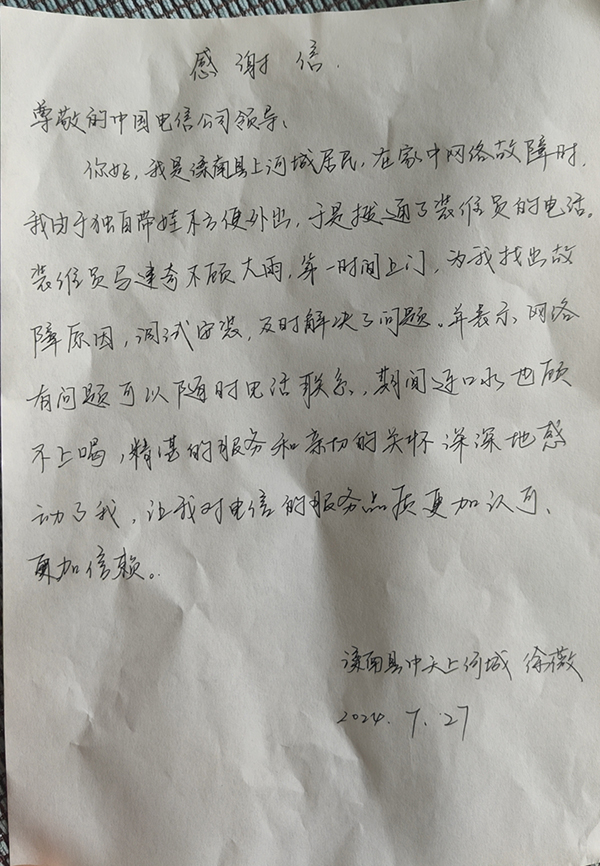 感谢信.
尊敬的中国电信公司领导:
你好,我是滦南县上河城居民,在家中网络故障时,
我由于独自带娃不方便外出,于是拨通了装维员的电话。
装维员马建奇不顾大雨,第一时间上门,为我找出故
障原因,调试安装,及时解决了问题。并表示网络
有问题可以随时电话联系,期间连口水也顾
不上喝,精湛的服务和亲切的关怀深深地感
动了我,让我对电信的服务品质更加认可、
更加信赖。
滦南县中天上河城 徐薇
2024.7.27